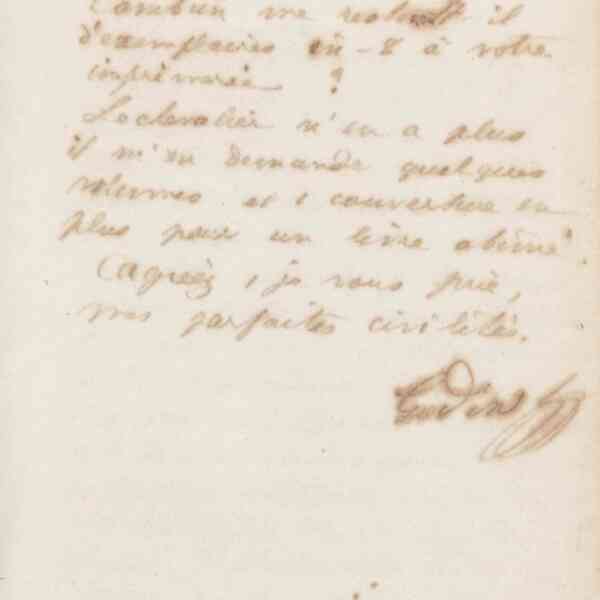 Combien me restait-il
d'exemplaires in-8 à votre
imprimerie ?
Lechevalier n'en a plus
il m'en demande quelques
volumes et 1 couverture en
plus pour un livre abimé.
Agréez, je vous prie,
mes parfaites civilités.
Godin